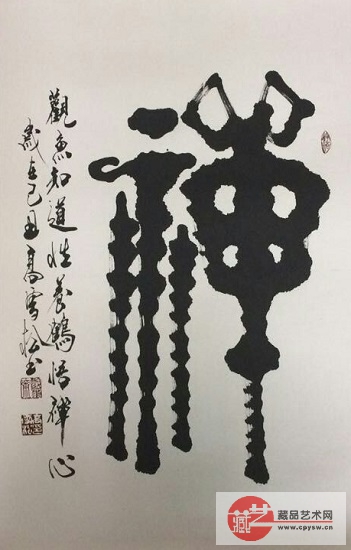 禅
觀魚知道性養鶴悟禅心
歲在己丑高雪松書
藏艺
藏品艺术网
www.cpysw.cn.com